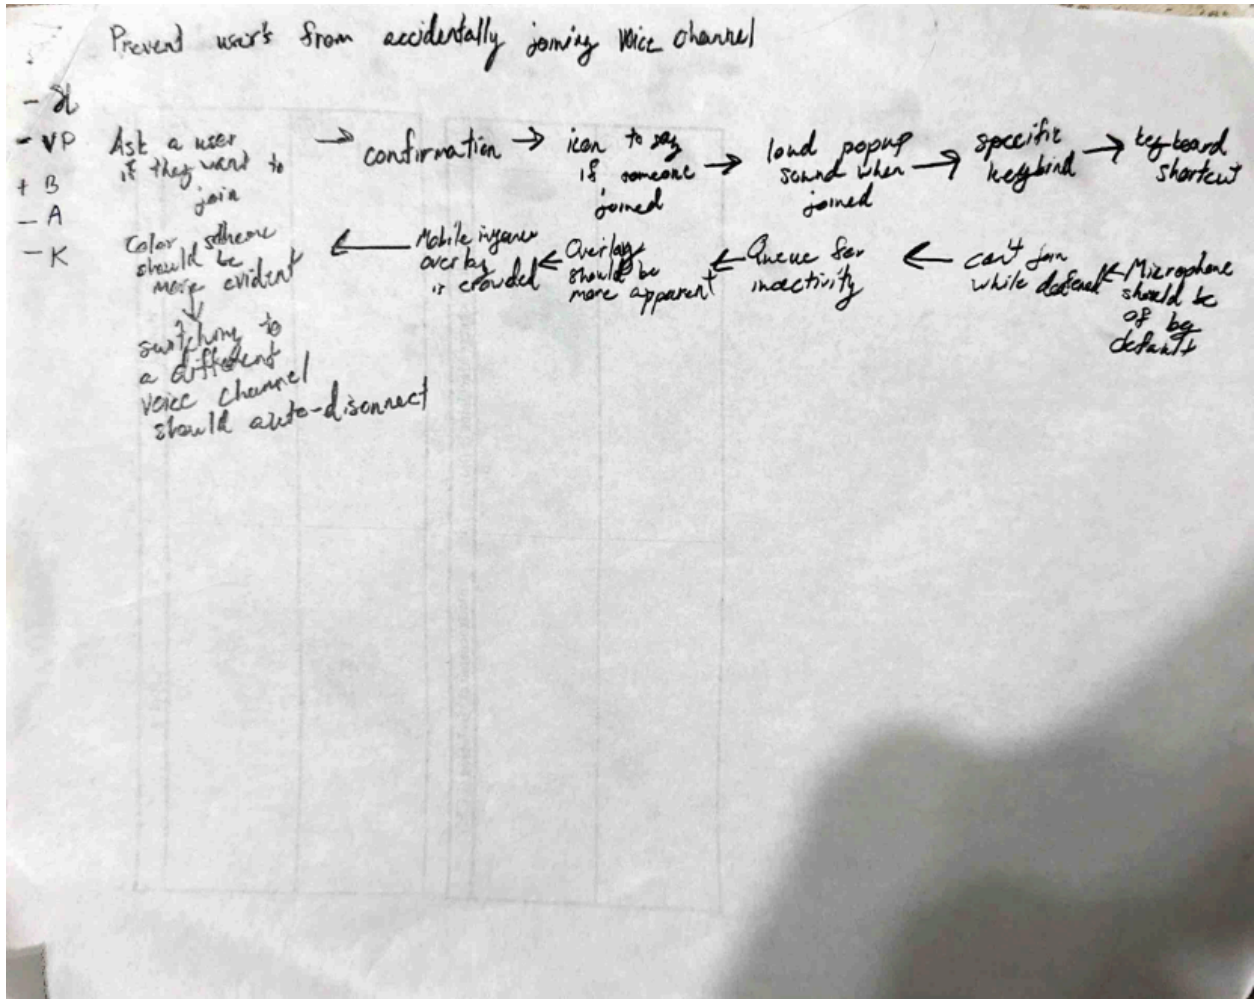 Prevent users from accidentally joining voice channel
- VP
+ B
- A
- K
Ask a user
if they want to
join
→
confirmation
→
icon to say
if someone
joined
→
loud popup
sound when
joined
→
specific
keybind
→
keyboard
shortcut
Microphone
should be
of by
default
←
can't join
while deafened
←
Queue for
inactivity
←
Overlay
should be
more apparent
←
Mobile
overlay
is crowded
←
Color scheme
should be
more evident
↓
switching to
a different
voice channel
should auto-disonnect